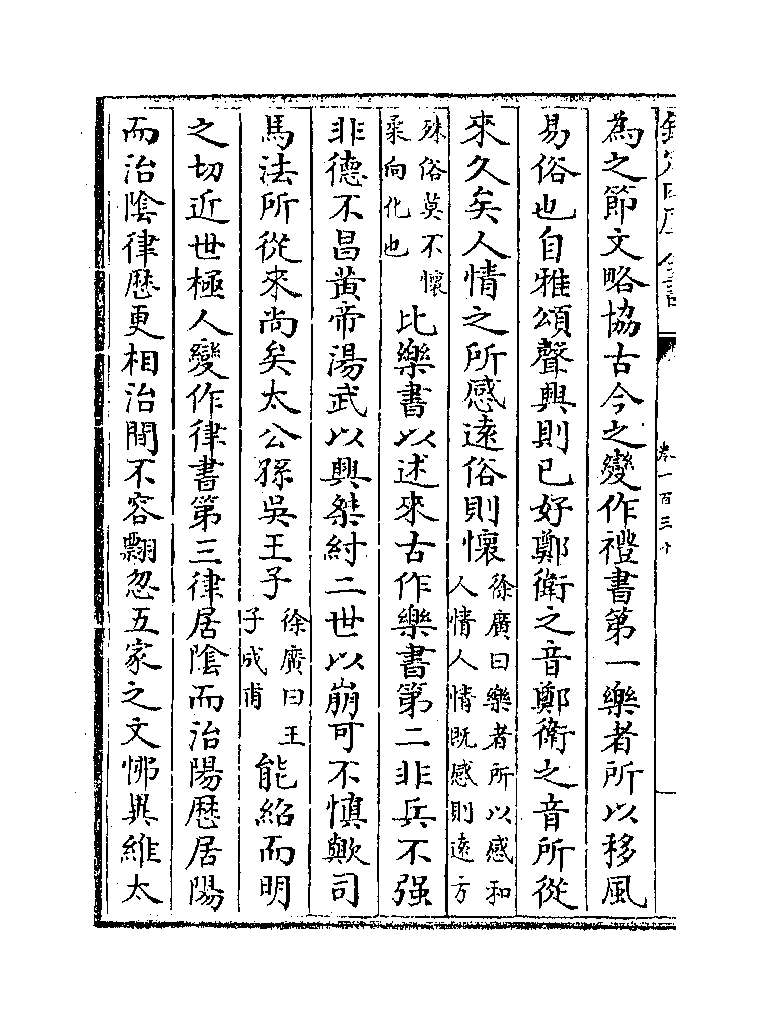 卷一百三十
為之節文略協古今之變作禮書第一樂者所以移風
易俗也自雅頌聲興則已好鄭衛之音鄭衛之音所從
來久矣人情之所感遠俗則懷徐廣曰樂者所以感和人情人情既感則遠方
殊俗莫不懷柔向化也比樂書以述來古作樂書第二非兵不强
非德不昌黃帝湯武以興桀紂二世以崩可不慎歟司
馬法所從來尚矣太公孫吳王子徐廣曰王子成甫能紹而明
之切近世極人變作律書第三律居隂而治陽厯居陽
而治隂律厯更相治間不容翲忽五家之文怫異維太